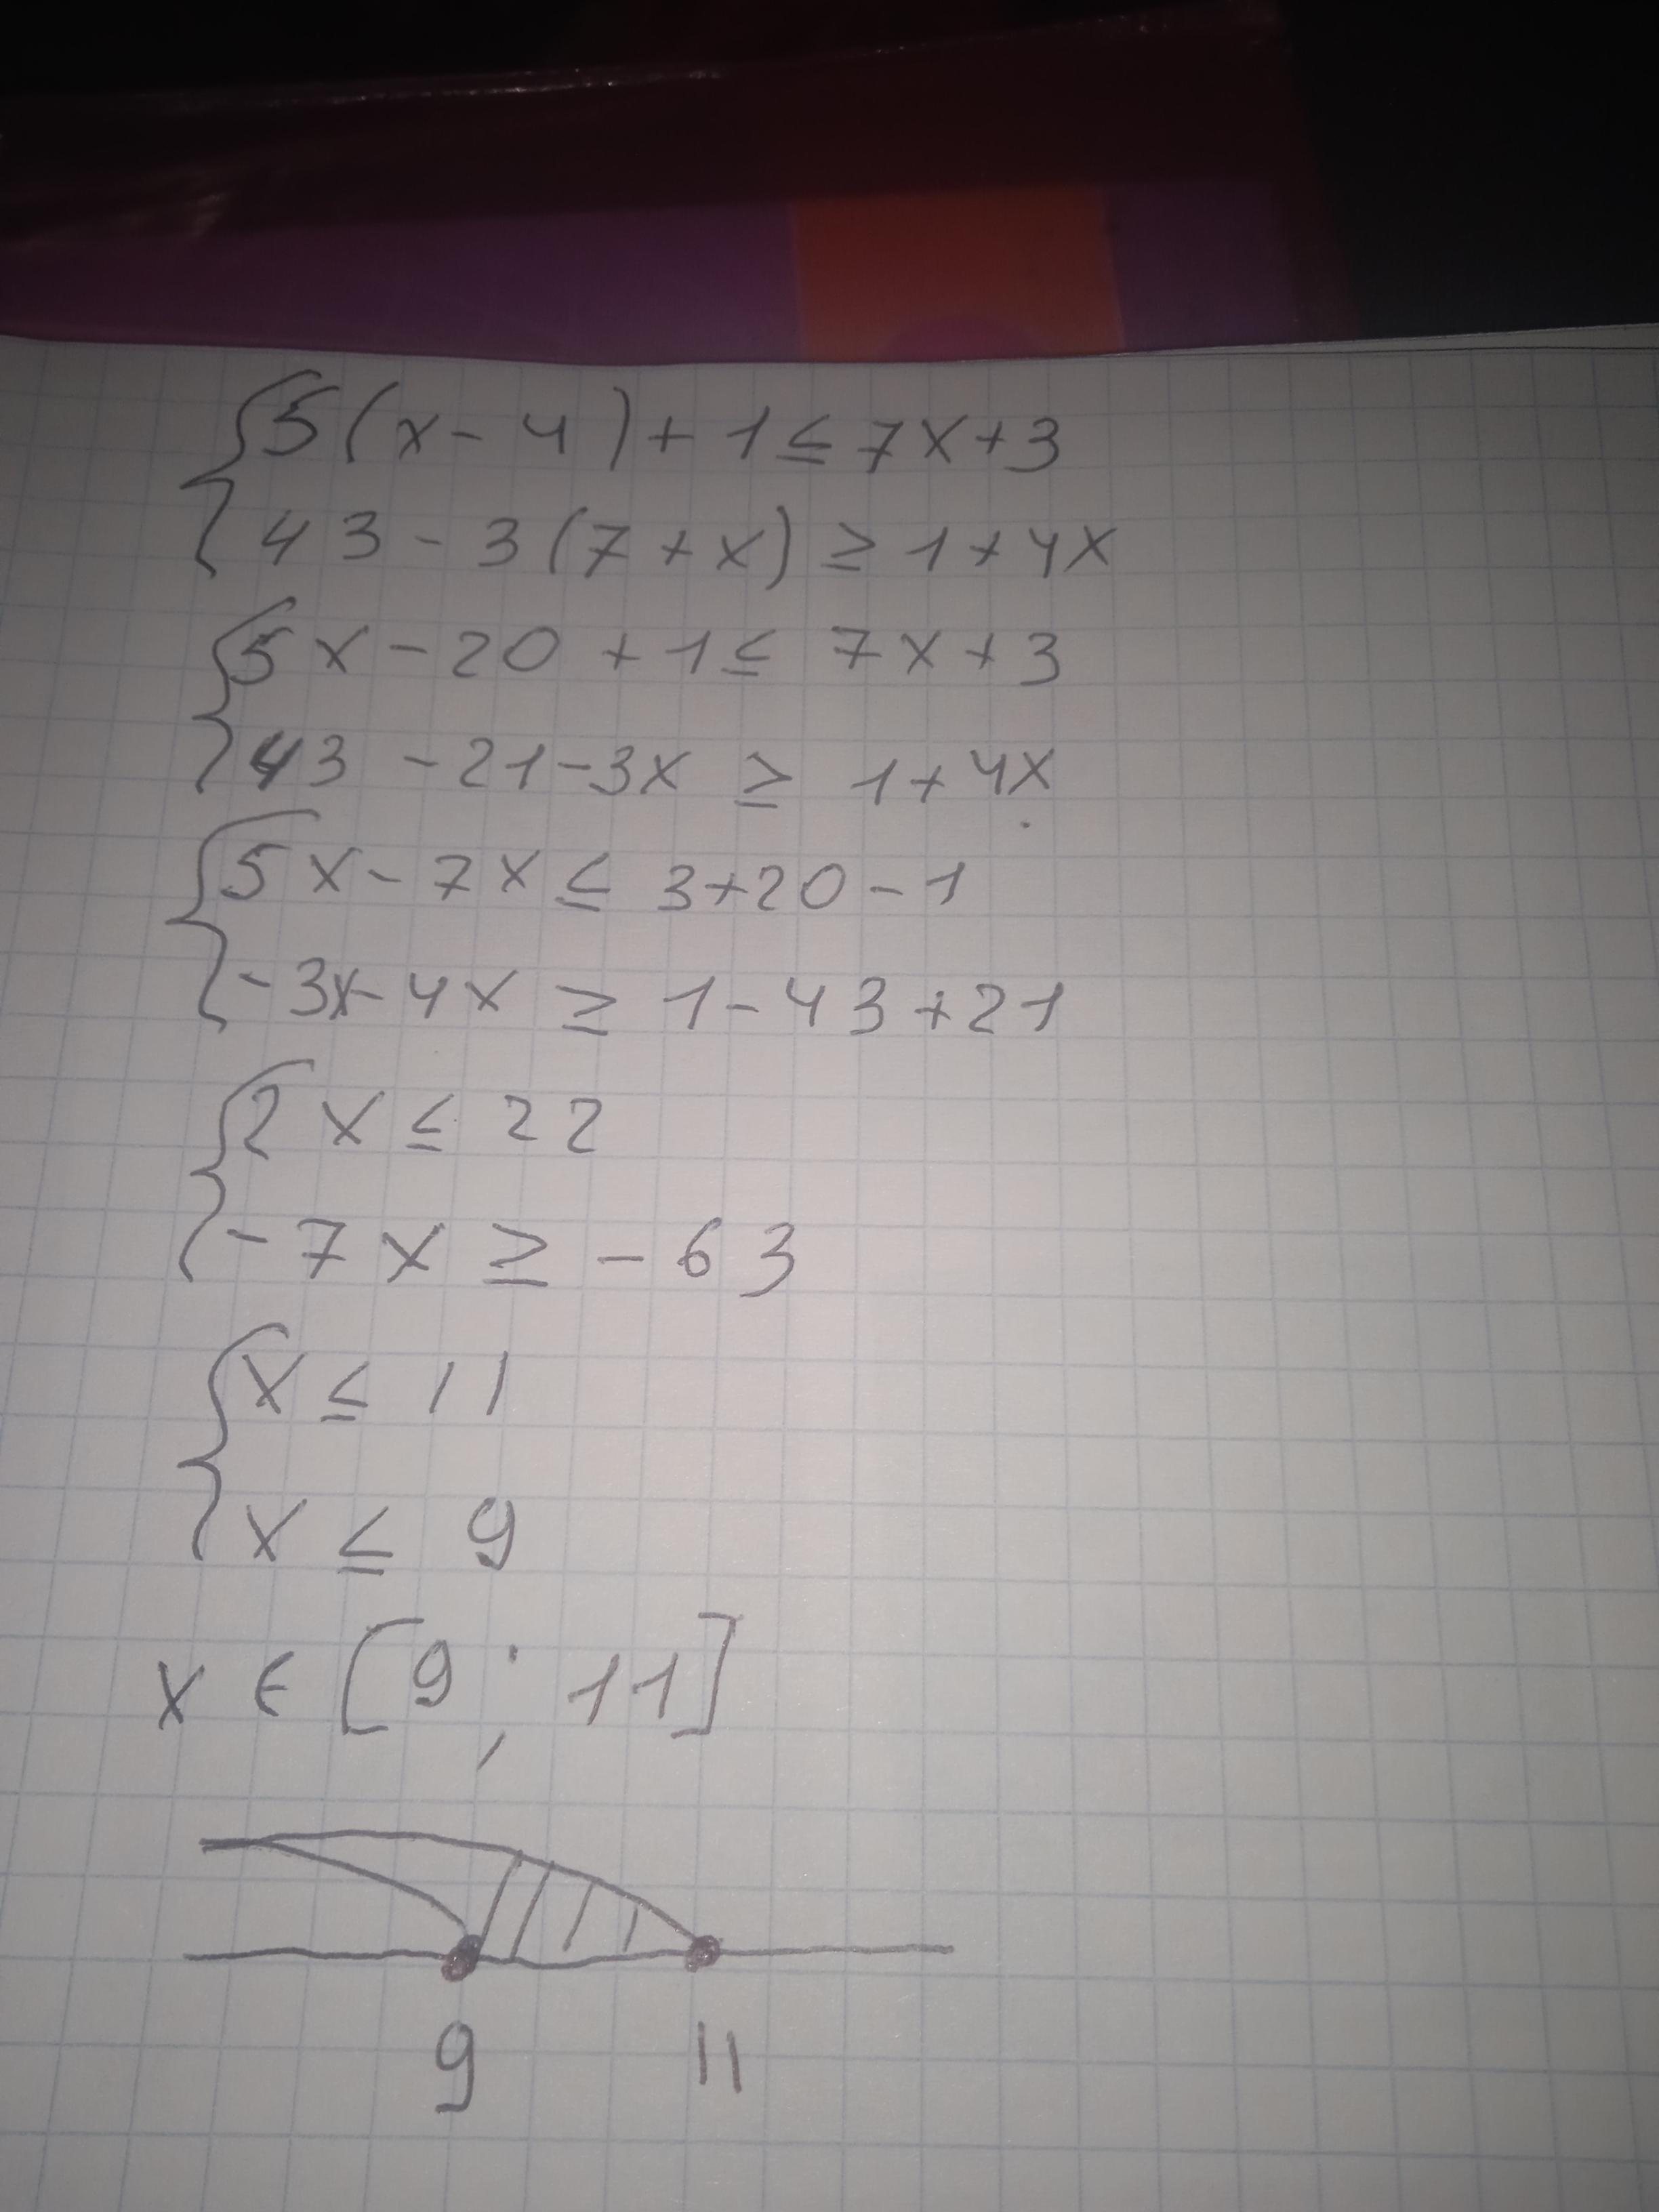 5(x-4)+1≤7x+3
43-3(7+x)≥1+4x
5x-20+1≤7x+3
43-21-3x≥1+4x
5x-7x≤3+20-1
-3x-4x≥1-43+21
2x≤22
-7x≥-63
x≤11
x≤9
x∈[9;11]
9 11